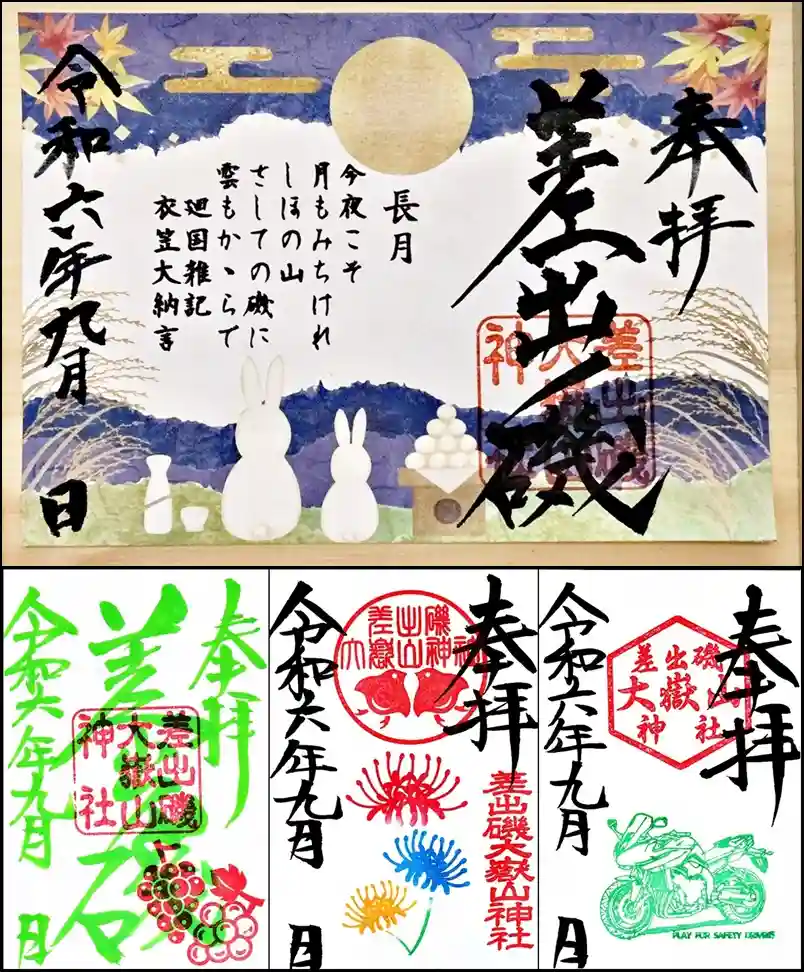 奉拝
差出ノ磯
差出磯
大嶽山
神社
長月
今夜こそ
月もみちけれ
しほの山
さしての磯に
雲もかゝらで
廻国雑記
衣笠大納言
令和六年九月 日
奉拝
差出磯
差出磯
大嶽山
神社
令和六年九月 日
奉拝
磯出差
神社山嶽大
差出磯大嶽山神社
令和六年九月 日
奉拝
差出磯
大嶽山
神社
令和六年九月 日
PLAY FOR SAFETY DRIVERS